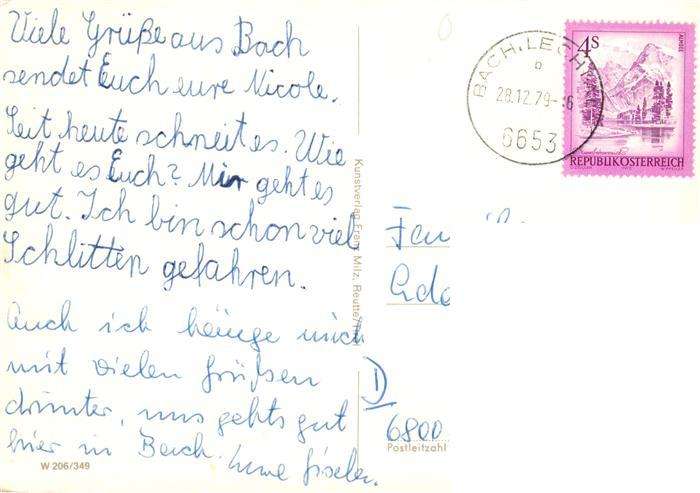 Viele Grüße aus Bach
sendet Euch eure Nicole.
Seit heute schneit es. Wie
geht es Euch? Mir geht es
gut. Ich bin schon viel
Schlitten gefahren.
Auch ich hänge mich
mit vielen Grüßen
drunter, uns gehts gut
hier in Bach.
W 206/349
Kunstverlag Franz Milz, Reutte/Tirol
BACH, LECHTAL
28.12.79
6653
4S
REPUBLIK ÖSTERREICH
D
6800
Postleitzahl